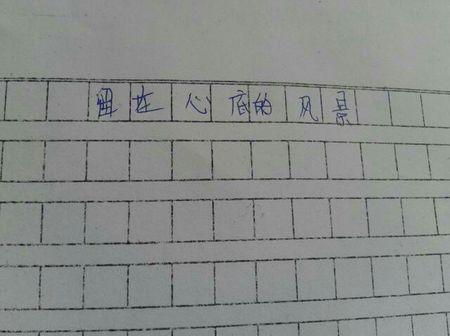 留在心底的风景